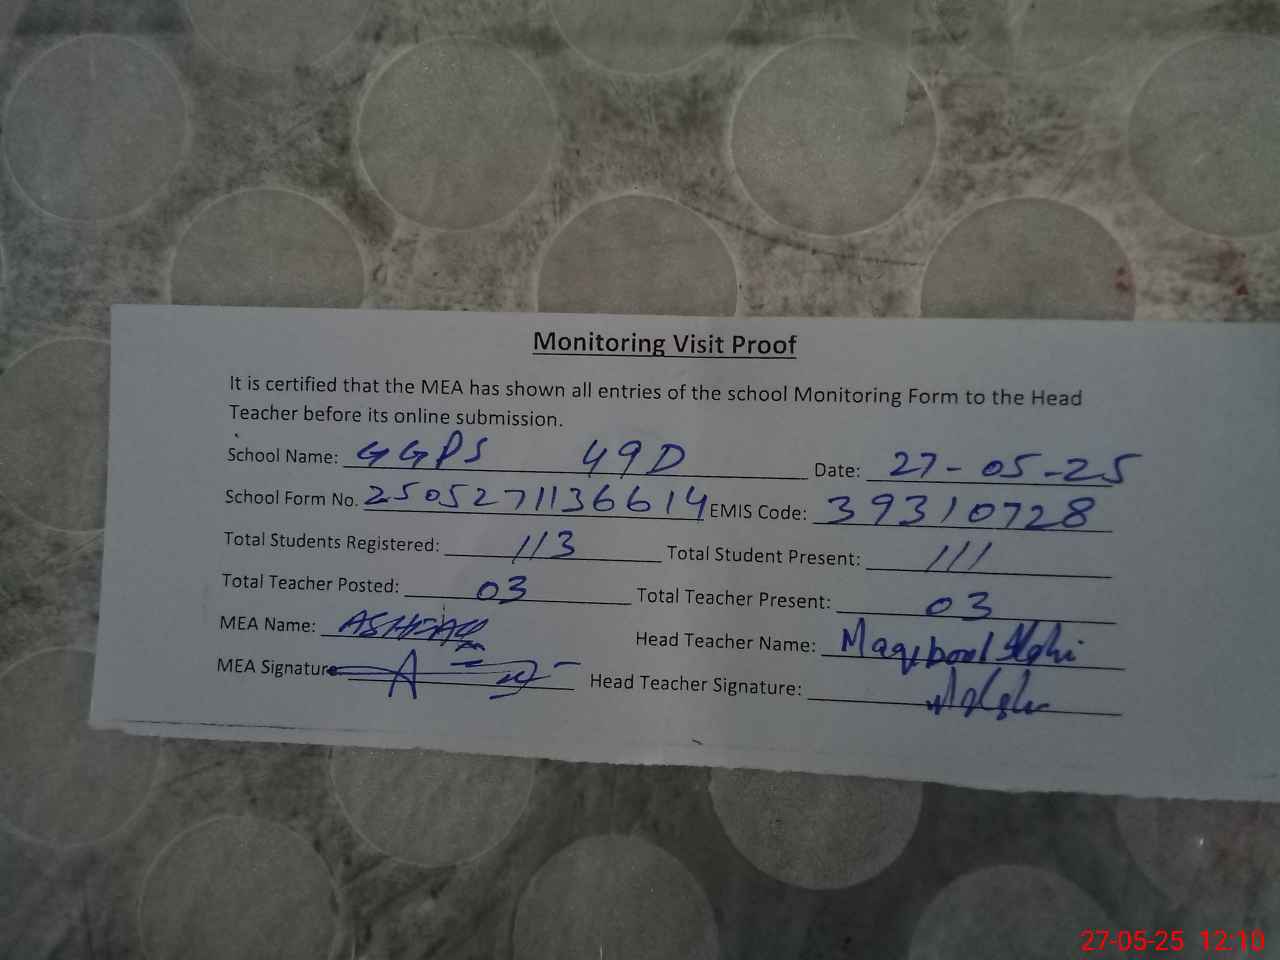 Monitoring Visit Proof
It is certified that the MEA has shown all entries of the school Monitoring Form to the Head
Teacher before its online submission.
School Name: GGPS 49D Date: 27-05-25
School Form No. 25052711136614 EMIS Code: 39310728
Total Students Registered: 113 Total Student Present: 111
Total Teacher Posted: 03 Total Teacher Present: 03
MEA Name: ASHFAQ Head Teacher Name: Maqbool Elahi
MEA Signature Head Teacher Signature:
27-05-25 12:10